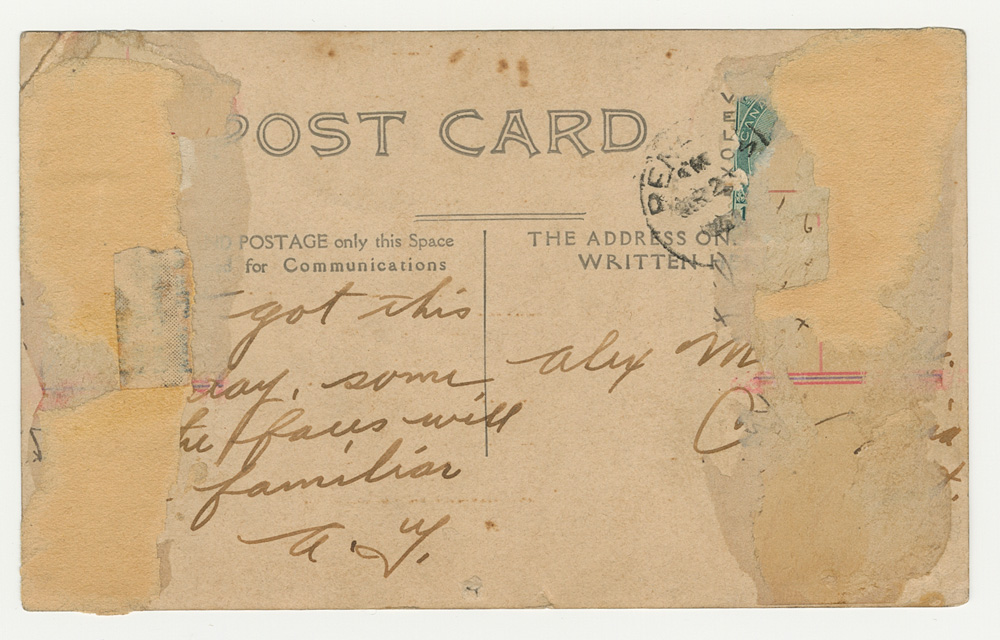 POST CARD
POSTAGE only this Space
for Communications
THE ADDRESS ON
WRITTEN H
CANA
got this
ay, some
the faces will
familiar
A. Y.
Alex M
C